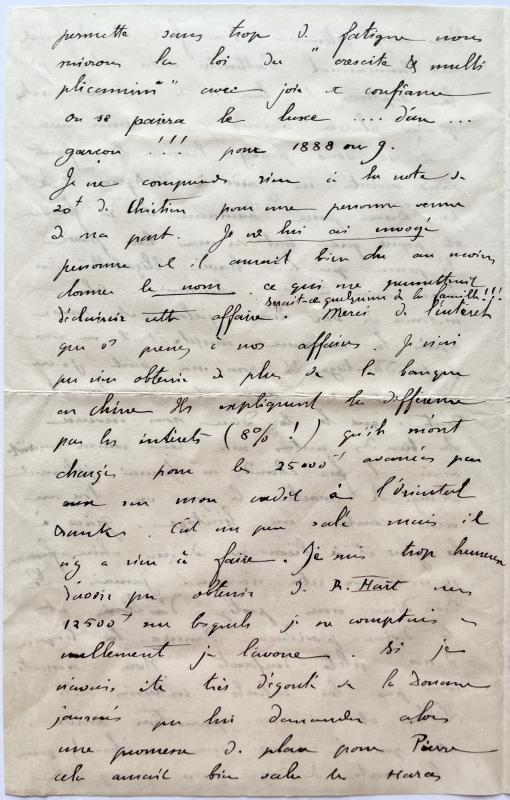 permette sans trop de fatigue nous
suivrons la loi du "crescite & multi
plicamini" avec joie et confiance
on se paiera le luxe .... d'un ...
garçon !!! pour 1888 ou 9.
Je ne comprends rien à la note de
20f de Chrétien pour une personne venue
de ma part. Je ne lui ai envoyé
personne et il aurait bien du au moins
donner le nom ce qui me permettrait
serait-ce quelqu'un de la famille !!!
d'éclaircir cette affaire. Merci de l'intérêt
que vs prenez à nos affaires. Je n'ai
pu rien obtenir de plus de la banque
en Chine Ils expliquent la différence
par les intérêts (8% !) qu'ils m'ont
chargés pour les 25000f avancés par
eux sur mon crédit à l'Oriental
Bank. C'est un peu salé mais il
n'y a rien à faire. Je suis trop heureux
d'avoir pu obtenir de R. Hart mes
12500f sur lesquels je ne comptais
nullement je l'avoue. Si je
n'avais été très dégouté de la Douane
j'aurais pu lui demander alors
une promesse de place pour Pierre
cela aurait bien valu les Haras